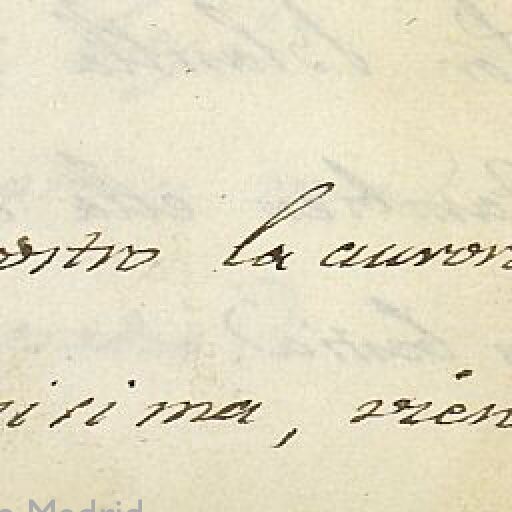 ostro la auror
isima, vien
Madrid